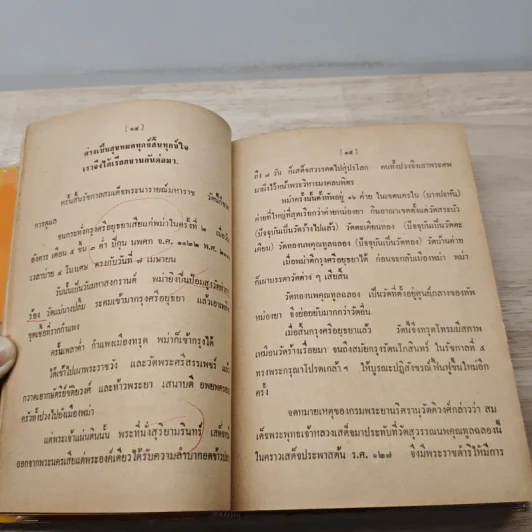 [ ๑๔ ]
ต่างเป็นสุขหมดทุกข์สิ้นทุกข์ใจ
เราจึงได้เรียกขานกันต่อมา.
ครั้นสิ้นรัชกาลสมเด็จพระนารายณ์มหาราช วัดนี้ก็ขาด
การดูแล
จนกระทั่งกรุงศรีอยุธยาเสียแก่พม่าในครั้งที่ ๒ เมื่อวัน
อังคาร เดือน ๕ ขึ้น ๙ ค่ำ ปีกุน นพศก จ.ศ. ๑๑๒๙
เวลาบ่าย ๔ โมงเศษ ตรงกับวันที่ ๗ เมษายน
วันนั้นเป็นวันมหาสงกรานต์ พม่ายิงปืนป้อมสูงวัดท่าการ
ร้อง วัดแม่นางปลื้ม ระดมเข้ามากรุงศรีอยุธยา แล้วเอาเพลิง
จุดเชื้อที่รากกำแพง
ครั้นเพลาค่ำ กำแพงเมืองทรุด พม่าก็เข้ากรุงได้
ได้เข้าไปเผาพระราชวัง และวัดพระศรีสรรเพชร แล้ว
กวาดเอากษัตริย์ขัติยวงศ์ และท้าวพระยา เสนาบดี อพยพครอบ
ครัวทั้งปวงไปยังเมืองพม่า
แต่พระเจ้าแผ่นดินนั้น พระที่นั่งสุริยามรินทร์ เสด็จหนี
ออกจากพระนครเสียแต่พระองค์เดียว ได้รับความลำบากอดข้าวปลา
[ ๑๕ ]
ถึง ๗ วัน ก็เสด็จสวรรคตไปสู่ปรโลก คนทั้งปวงจึงเอาพระศพ
มาฝังไว้หน้าพระวิหารมงคลบพิตร
พม่าครั้งนั้นตั้งทัพอยู่ ๑๖ ค่าย ในเขตนครใน (บางปะหัน)
ค่ายที่ใหญ่ที่สุดเรียกว่าค่ายกม่องยา กินอาณาเขตตั้งแต่วัดสระบัว
(ปัจจุบันเป็นวัดร้างไปแล้ว) วัดตะเคียนทอง (ปัจจุบันเป็นวัดตะ
เคียน) วัดทองนพคุณทูลฉลอง (ปัจจุบันเป็นวัดทอง) วัดบ้านค่าย
เมื่อพม่าตีกรุงศรีอยุธยาได้ ก่อนจะกลับเมืองพม่า พม่า
ก็เผาบรรดาวัดต่าง ๆ เสียสิ้น
วัดทองนพคุณทูลฉลอง เป็นวัดที่ตั้งอยู่ศูนย์กลางของทัพ
หม่องยา จึงย่อยยับไปมากกว่าวัดอื่น
เมื่อสิ้นกรุงศรีอยุธยาแล้ว วัดนี้จึงทรุดโทรมมีสภาพ
เหมือนวัดร้างเรื่อยมา จนถึงสมัยกรุงรัตนโกสินทร์ ในรัชกาลที่ ๕
ทรงพระกรุณาโปรดเกล้า ฯ ให้บูรณะปฏิสังขรณ์ฟื้นฟูขึ้นใหม่อีก
ครั้ง
จดหมายเหตุของกรมพระยานริศรานุวัดติวงศ์กล่าวว่า สม
เด็จพระพุทธเจ้าหลวงเสด็จมาประทับที่วัดสุวรรณนพคุณทูลฉลองนี้
ในคราวเสด็จประพาสต้น ร.ศ. ๑๒๗ จึงมีพระราชดำริให้มีการ